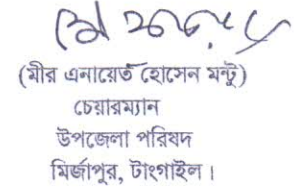 (মীর এনায়েত হোসেন মন্টু)
চেয়ারম্যান
উপজেলা পরিষদ
মির্জাপুর, টাংগাইল।